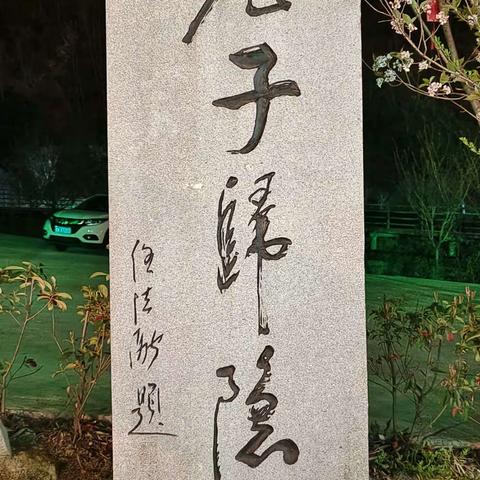 老子歸隱
任法融題